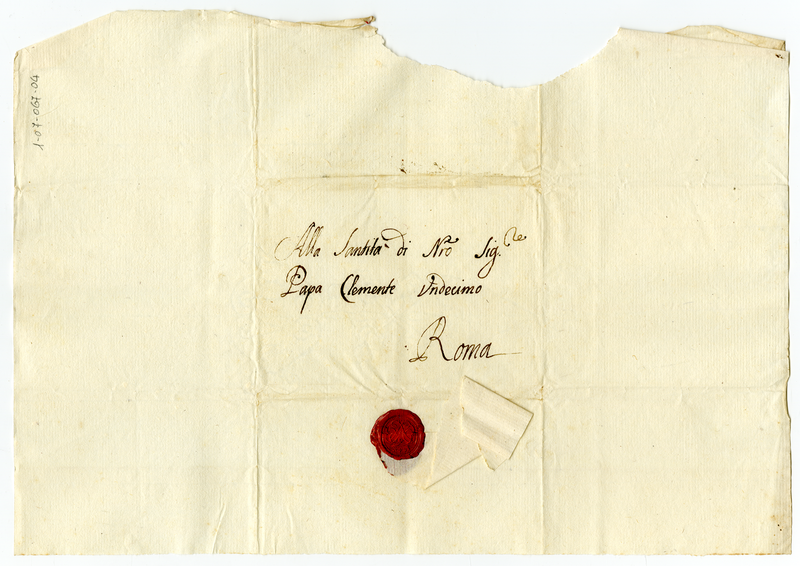 1-07-067-04
Alla Santità di Nro Sig.re
Papa Clemente Vndecimo
Roma